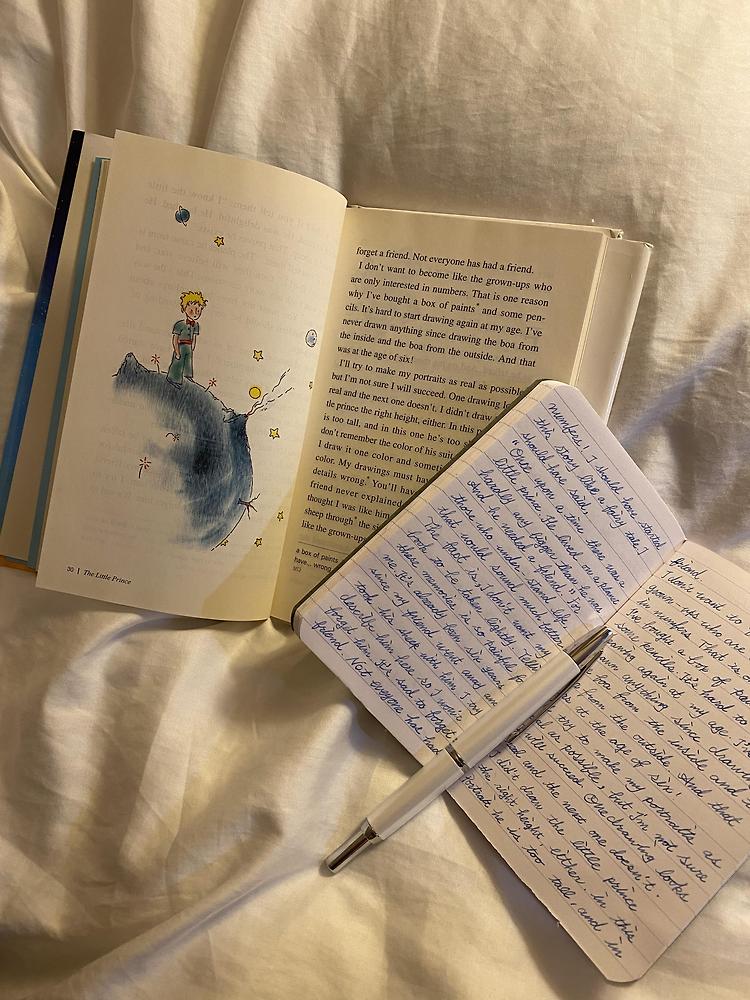 30 | The Little Prince
forget a friend. Not everyone has had a friend.
I don't want to become like the grown-ups who
are only interested in numbers. That is one reason
why I've bought a box of paints* and some pen-
cils. It's hard to start drawing again at my age. I've
never drawn anything since drawing the boa from
the inside and the boa from the outside. And that
was at the age of six!
I'll try to make my portraits as real as possible,
but I'm not sure I will succeed. One drawing
real and the next one doesn't. I didn't draw
tle prince the right height, either. In this
is too tall, and in this one he's too
don't remember the color of his suit
I draw it one color and
color. My drawings must have
details wrong.* You'll have
friend never explained
thought I was like him
sheep through* the
like the grown-
a box of paints
have... wrong
numbers, I should have started
this story like a fairy tale! I
should have said:
"Once upon a time there was
little prince. He lived on a planet
hardly any bigger than he was
And he needed a friend" For
those who understand life
that would sound much better
The fact is, I don't want my
book to be taken lightly.
these memories is so painful for
me. It's already been six years
since my friend went away and
took his sheep with him. I
describe him here so I won't
forget him. It's sad to forget
friend. Not everyone has had
friend
I don't want to
grown-ups who are
in numbers. That is
I've bought a box of
some pencils. It's hard to
again at my age. I've
drawn anything since drawing
boa from the inside and
from the outside. And that
at the age of six!
try to make my portraits as
as possible, but I'm not sure
will succeed. One drawing looks
and the next one doesn't.
didn't draw the little prince
the right height, either. in this
portrait he is too tall, and in